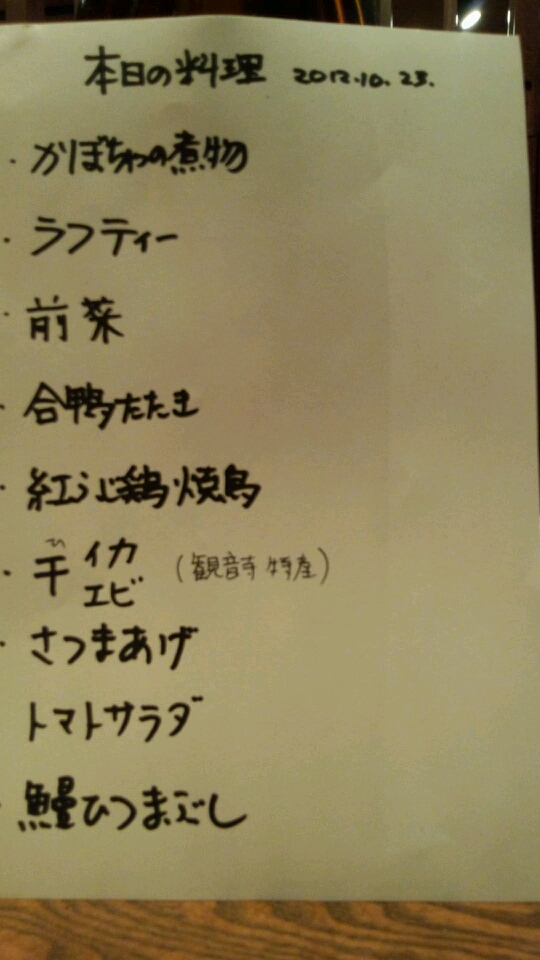 本日の料理 2012.10.25.
・かぼちゃの煮物
・ラフティー
・前菜
・合鴨たたき
・紅ふじ鶏焼鳥
・干イカ エビ (観音寺特産)
・さつまあげ
トマトサラダ
・鰻ひつまぶし